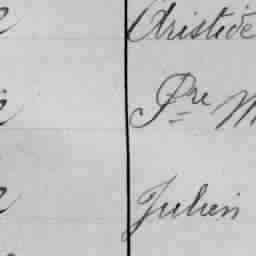 Aristide
Pre M
Julien